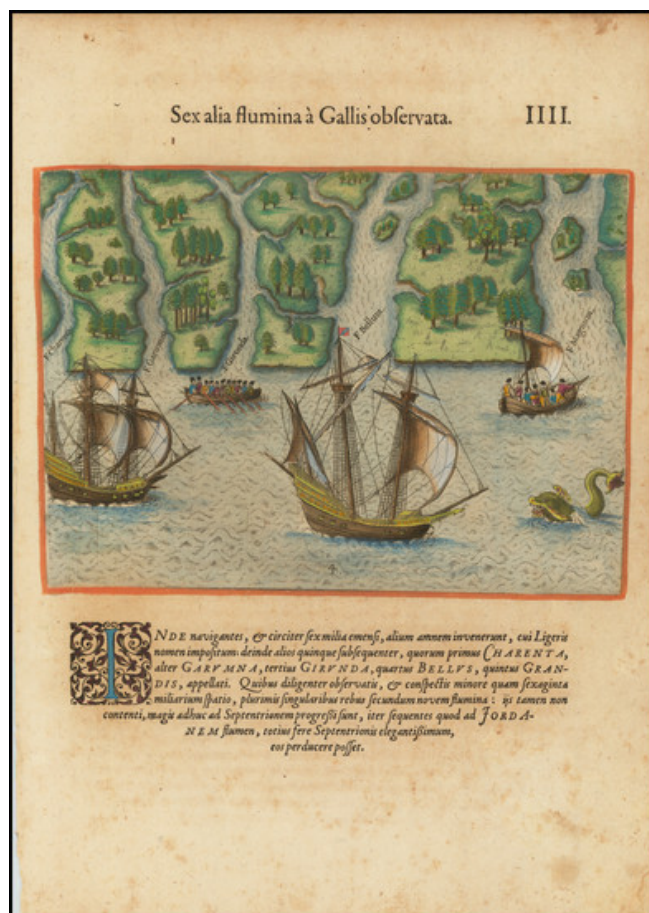 Sex alia flumina à Gallis obſervata. IIII.
F. Garumna
F. Gironda
F. Bellum
F. Magnum
4
INDE navigantes, & circiter ſex milia emenſi, alium amnem invenerunt, cui Ligeris
nomen impoſitum: deinde alios quinque ſubſequenter, quorum primus CHARENTA,
alter GARVMNA, tertius GIRVNDA, quartus BELLVS, quintus GRAN-
DIS, appellati. Quibus diligenter obſervatis, & conſpectis minore quam ſexaginta
miliarium ſpatio, plurimis ſingularibus rebus ſecundum novem flumina: ijs tamen non
contenti, magis adhuc ad Septentrionem progreſſi ſunt, iter ſequentes quod ad JORDA-
NEM flumen, totius fere Septentrionis elegantiſſimum,
eos perducere poſſet.